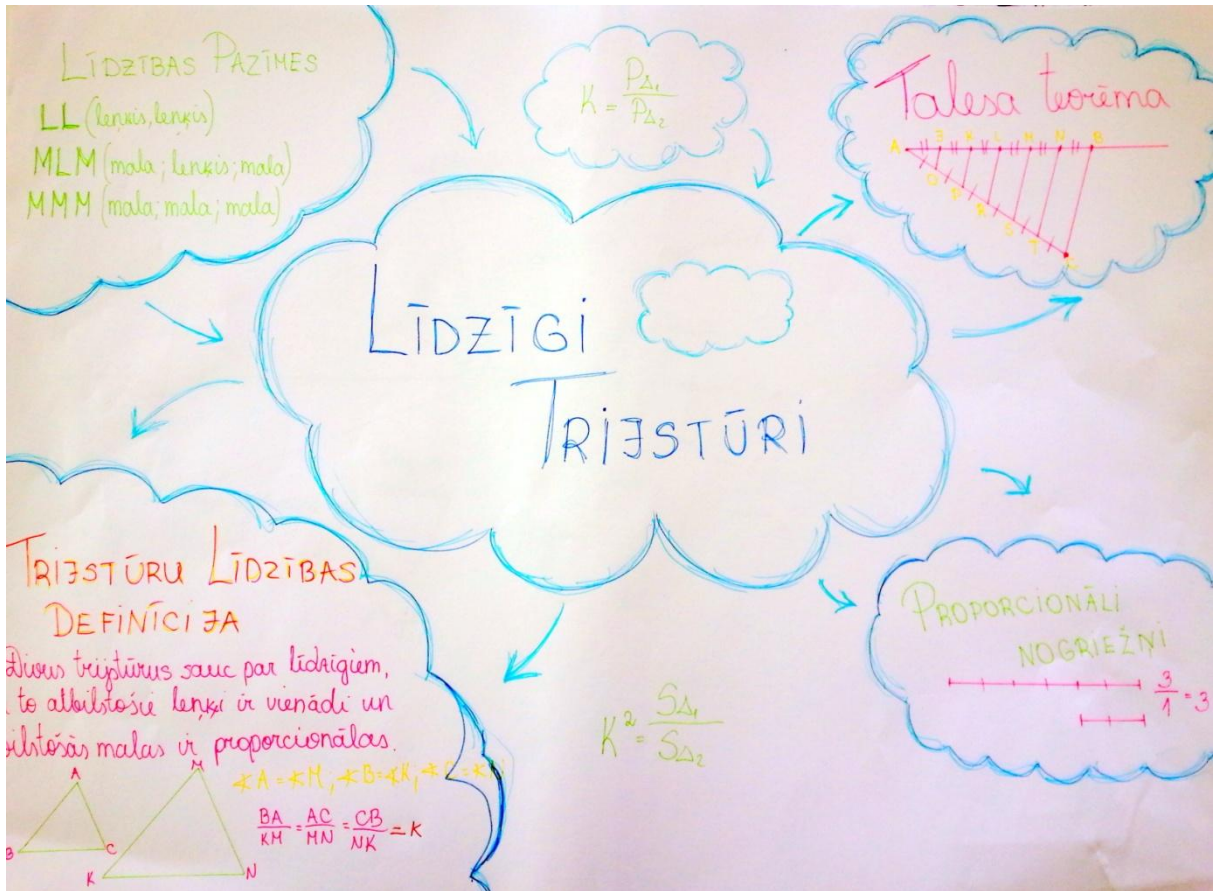 LĪDZĪBAS PAZĪMES
LL (leņķis, leņķis)
MLM (mala; leņķis; mala)
MMM (mala; mala; mala)
K = PΔ₁ / PΔ₂
Talesa teorēma
A J K L M N B
O P R S T C
LĪDZĪGI
TRIJSTŪRI
TRIJSTŪRU LĪDZĪBAS
DEFINĪCIJA
Divus trijstūrus sauc par līdzīgiem,
to atbilstošie leņķi ir vienādi un
bilstošās malas ir proporcionālas.
A
B C
M
K N
∢A = ∢M, ∢B = ∢K, ∢C =
BA/KM = AC/MN = CB/NK = K
K² = SΔ₁ / SΔ₂
PROPORCIONĀLI
NOGRIEŽŅI
3/1 = 3